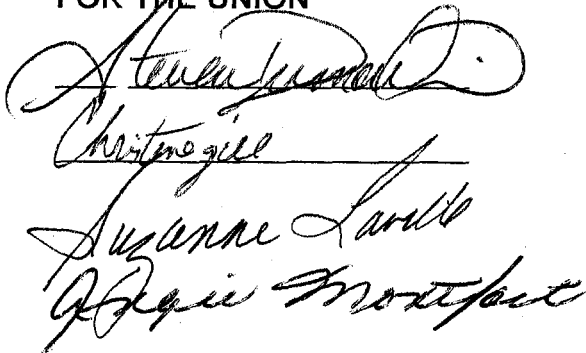 FOR THE UNION
Steven
Christine Gill
Suzanne Lavallé
Angie Montfort